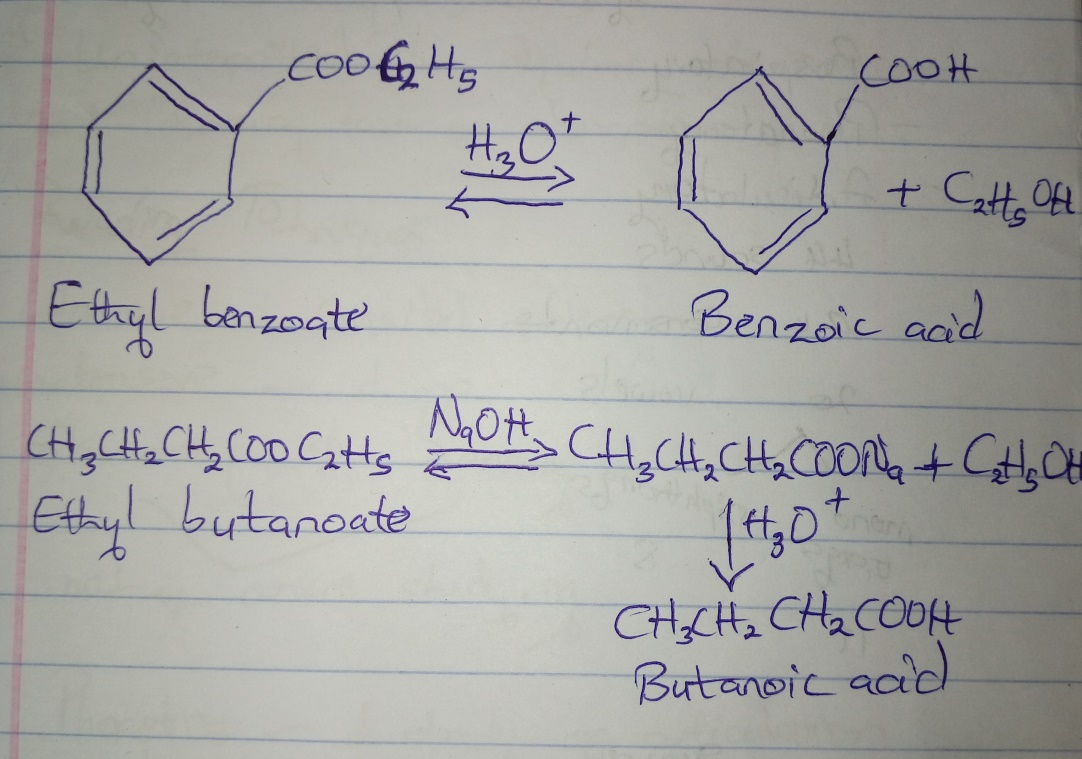 COOC₂H₅ H₃O⁺ ⇌ COOH + C₂H₅OH
Ethyl benzoate Benzoic acid
CH₃CH₂CH₂COOC₂H₅ NaOH ⇌ CH₃CH₂CH₂COONa + C₂H₅OH
Ethyl butanoate ↓ H₃O⁺
CH₃CH₂CH₂COOH
Butanoic acid